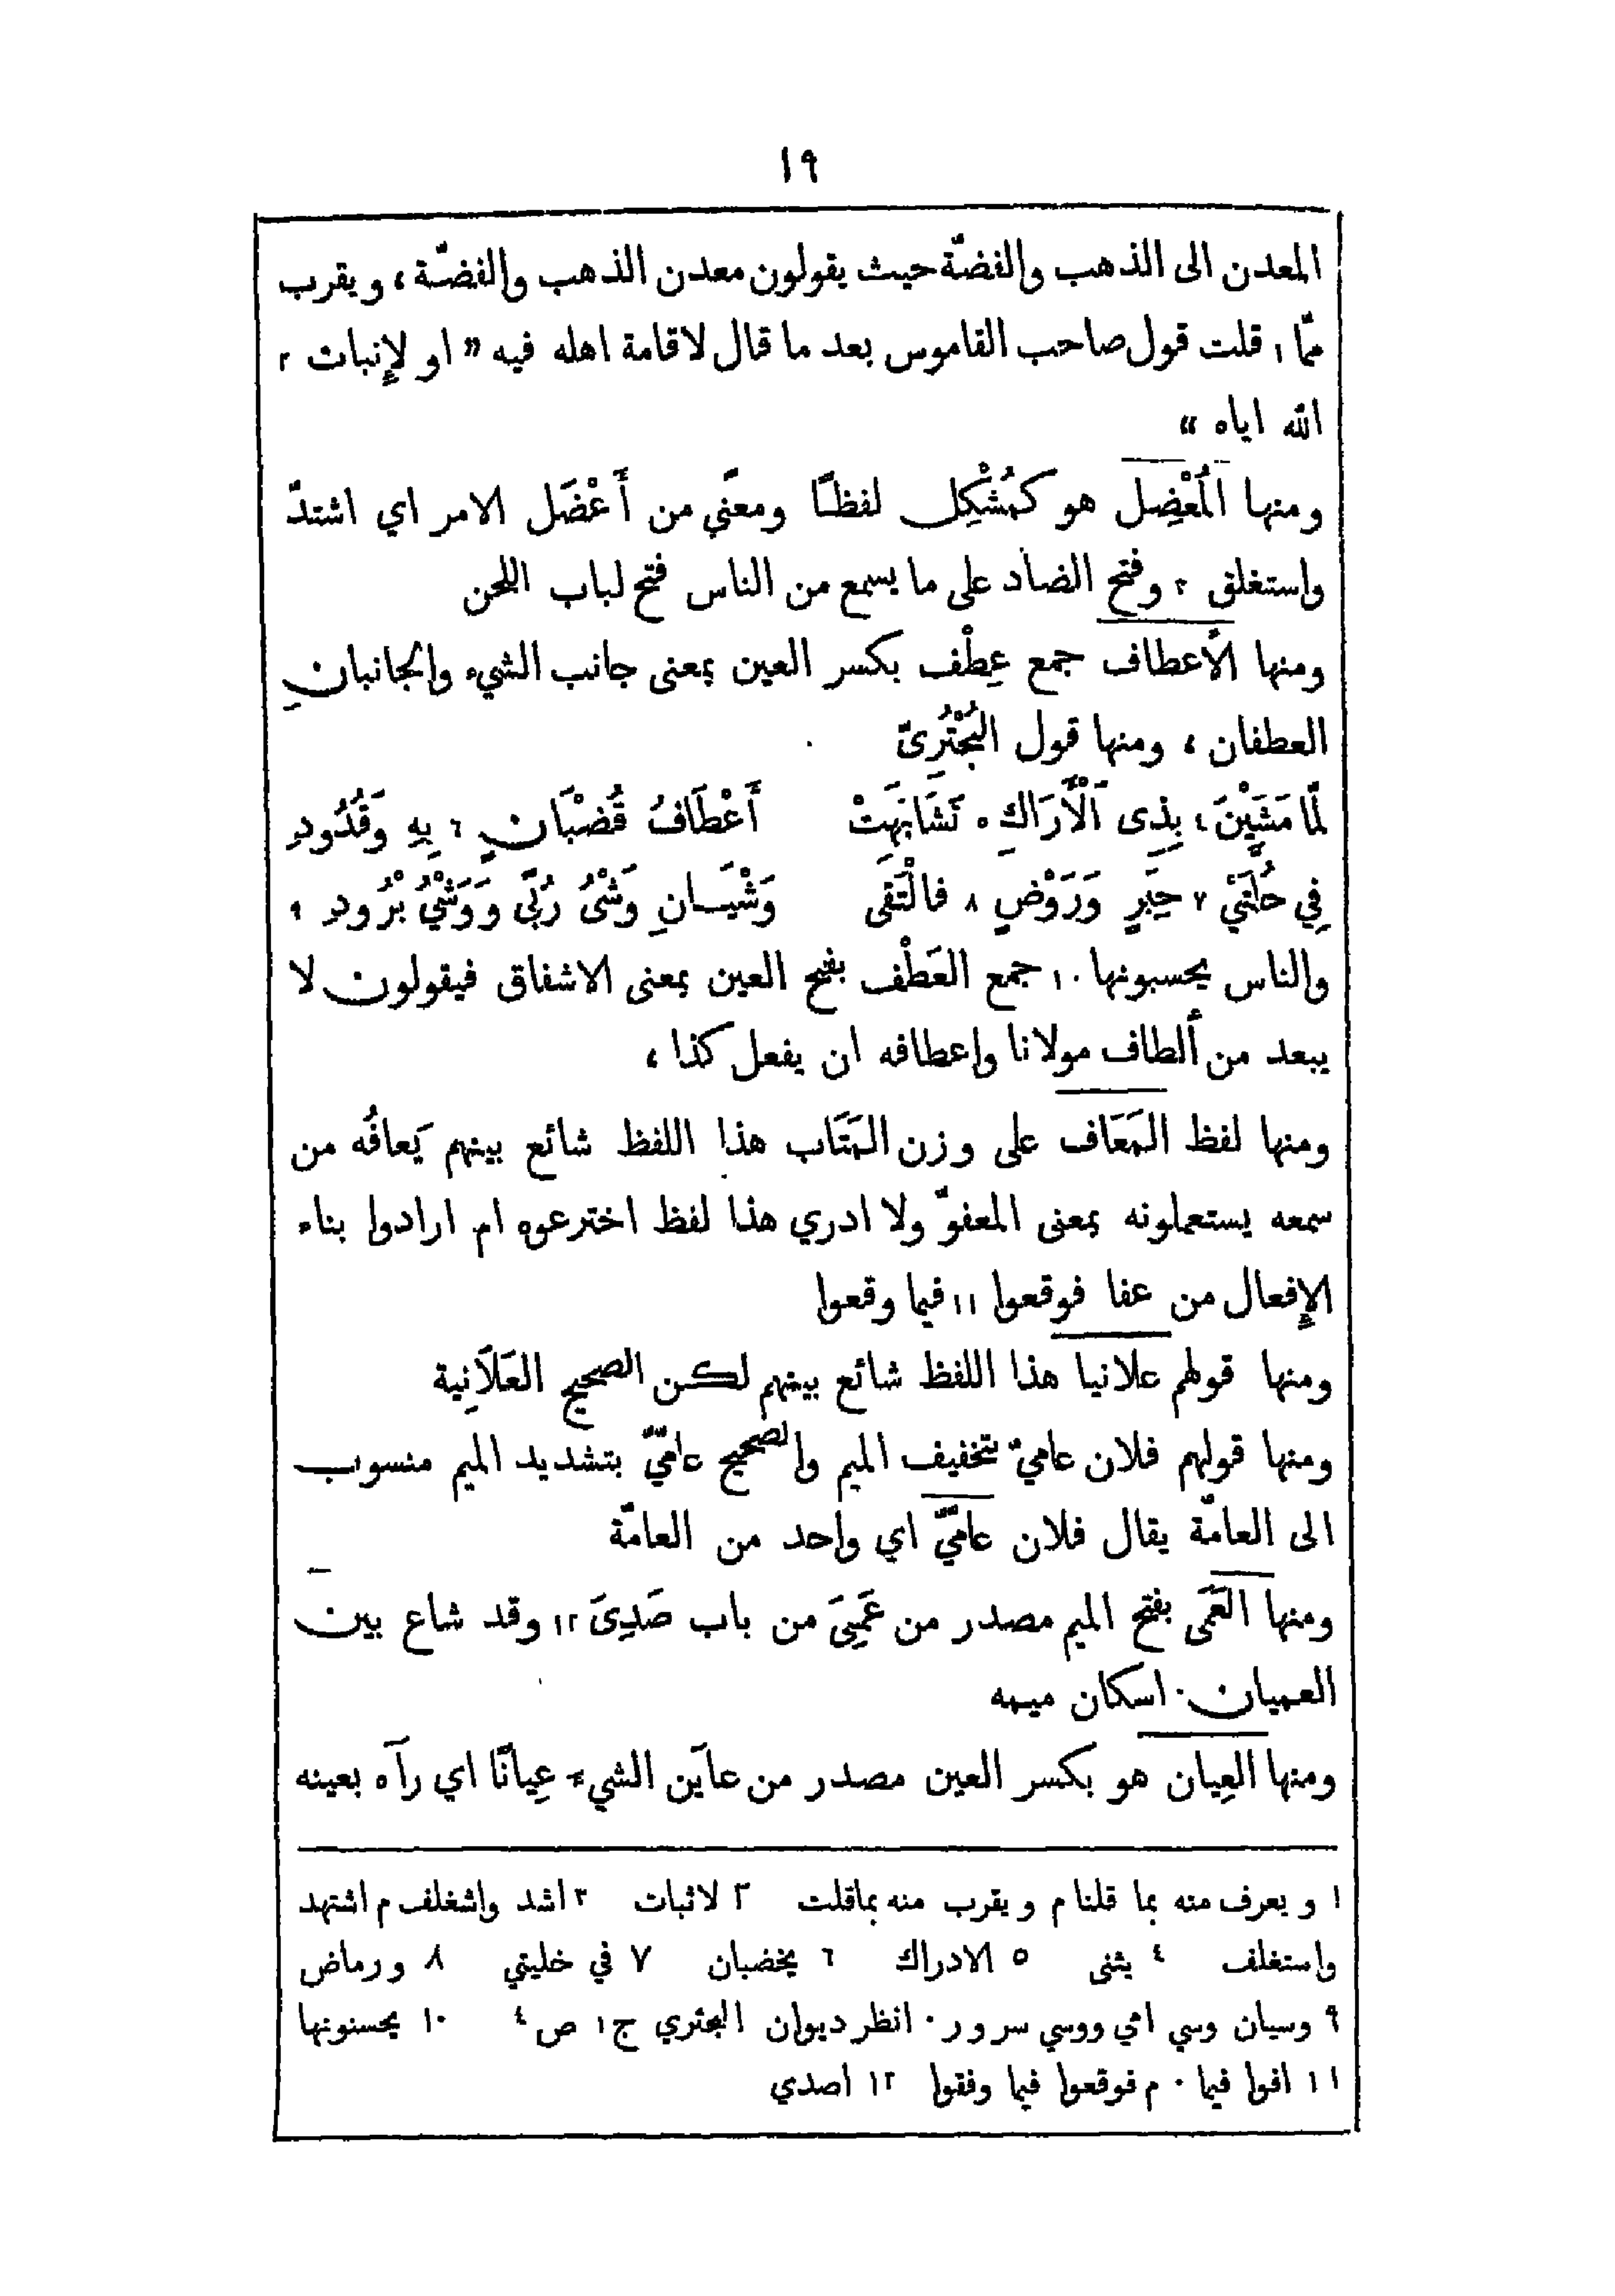 ١٩
المعدن الى الذهب والفضّة حيث يقولون معدن الذهب والفضّة، ويقرب
ممّا ١ قلت قول صاحب القاموس بعد ما قال لاقامة اهله فيه " او لإنبات ٢
الله اياه "
ومنها المُعْضِل هو كمُشْكِل لفظًا ومعنًى من أَعْضَل الامر اي اشتدّ
واستغلق ٣ وفتح الضاد على ما يسمع من الناس فتح لباب اللحن
ومنها الأعطاف جمع عِطْف بكسر العين بمعنى جانب الشيء والجانبانِ
العطفان، ومنها قول البُحْتُرِىّ
لمّا مَشَيْنَ ٤ بِذِى ٱلْأَرَاكِ ٥ تَشَابَهَتْ أَعْطَافُ قُضْبَانٍ ٦ بِهِ وَقُدُودِ
فِي حُلَّتَيْ ٧ حِبَرٍ وَرَوْضٍ ٨ فالْتَقَى وَشْيَانِ وَشْىُ رُبًى وَوَشْيُ بُرُودِ ٩
والناس يحسبونها ١٠ جمع العَطْف بفتح العين بمعنى الاشفاق فيقولون لا
يبعد من ألطاف مولانا واعطافه ان يفعل كذا،
ومنها لفظ المَعَاف على وزن المَتَاب هذا اللفظ شائع بينهم يَعافُه من
سمعه يستعملونه بمعنى المعفوّ ولا ادري هذا لفظ اخترعوه ام ارادوا بناء
الإفعال من عفا فوقعوا ١١ فيما وقعوا
ومنها قولهم علانيا هذا اللفظ شائع بينهم لكن الصحيح العَلَانِية
ومنها قولهم فلان عاميّ بتخفيف الميم والصحيح عامّيّ بتشديد الميم منسوب
الى العامّة يقال فلان عامّيّ اي واحد من العامّة
ومنها العَمَى بفتح الميم مصدر من عَمِيَ من باب صَدِىَ ١٢ وقد شاع بين
العميان اسكان ميمه
ومنها العِيان هو بكسر العين مصدر من عاَين الشيء عِيانًا اي رآه بعينه
١ ويعرف منه بما قلنا م ويقرب منه بماقلت ٢ لاثبات ٣ اشد واشغلف م اشتهد
واستغلف ٤ يثنى ٥ الادراك ٦ يخضبان ٧ في خليتي ٨ ورماض
٩ وسيان وسي امي ووسي سرور. انظر ديوان البحتري ج١ ص٤ ١٠ يحسنونها
١١ افوا فيما. م فوقعوا فيما وفقوا ١٢ اصدي